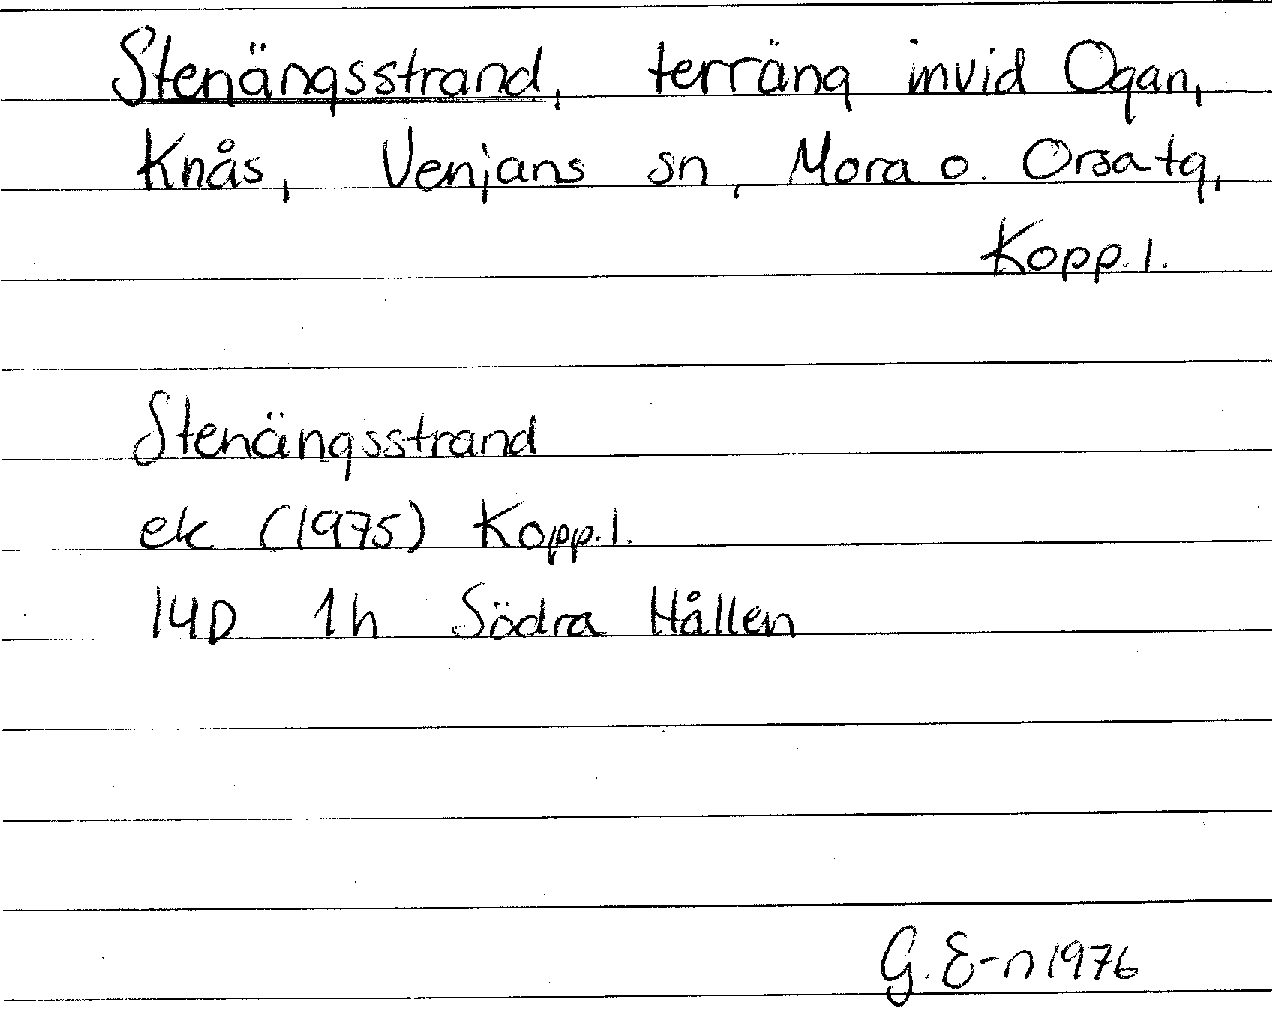 Stenängsstrand, terräng invid Ogan,
Knås, Venjans sn, Mora o. Orsa tg,
Kopp. l.
Stenängsstrand
ek (1975) Kopp. l.
14D 1h Södra Hållen
G. E-n 1976